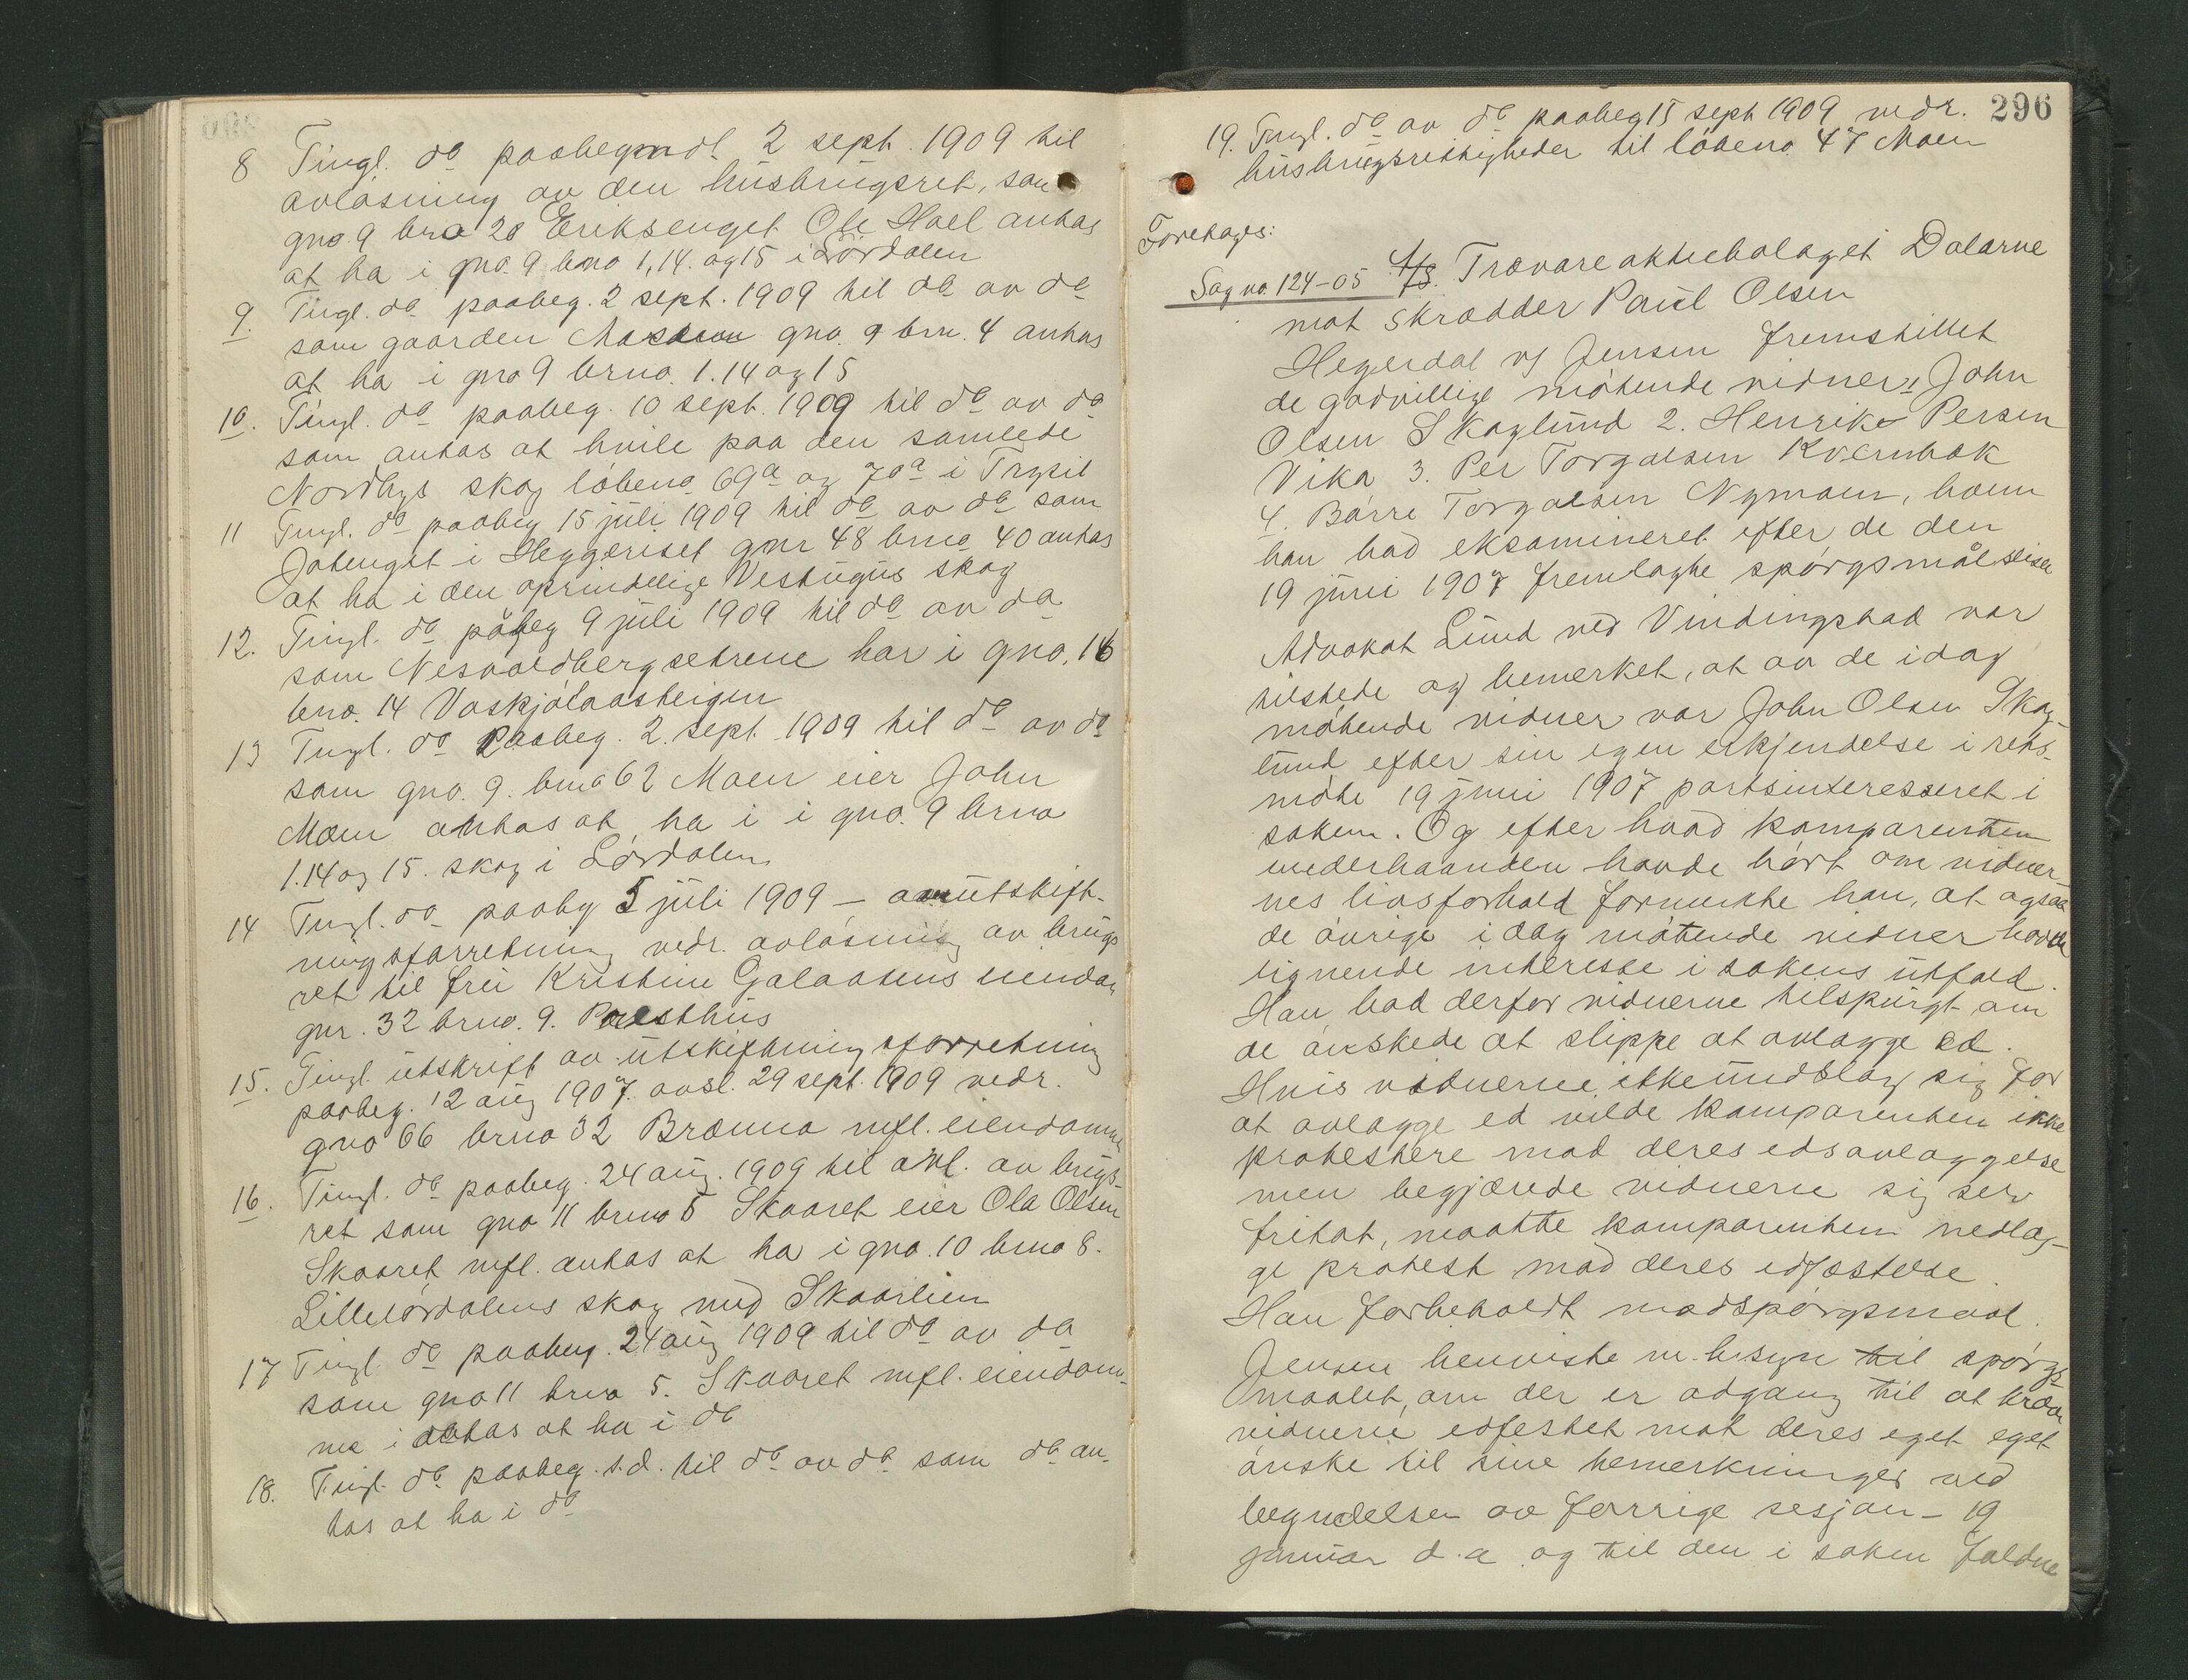 8 Tingl. do paabegyndt 2 sept. 1909 til
avløsning av den husbrugsret, som
gno. 9 bno 20 Eriksenget Ole Hoel antas
at ha i gno. 9 bno 1, 14. og 15 i Lørdalen
9. Tingl. do paabeg. 2 sept. 1909 til do av do
som gaarden gno. 9 brn. 4 antas
at ha i gno 9 brno. 1. 14 og 15
10. Tingl. do paabeg. 10 sept. 1909 til do av do
som antas at hvile paa den samlede
Nordbys skog løbeno 69a og 70a i Trysil
11 Tingl. do paabeg 15 juli 1909 til do av do som
Jotenget i Heggeriset gnr 48 brno 40 antas
at ha i den oprindelige Vestugus skog
12. Tingl. do påbeg 9 juli 1909 til do av do
som Nesvoldbergsetrene har i gno. 16
bno. 14 Vaskjølaasteigen
13 Tingl. do Paabeg. 2. sept. 1909 til do av do
som gno. 9. bno 62 Moen eier John
Moen antas at ha i i gno. 9 brno
1. 14 og 15. skog i Lørdalen
14 Tingl. do paabg 5 juli 1909 — av utskift-
ningsforretning vedr. avløsning av brugs
ret til fru Kristine Galaasens eiendom
gnr. 32 brno. 9. Præsthus
15. Tingl. utskrift av utskiftningsforretning
paabeg. 12 aug 1907. avsl. 29 sept. 1909 vedr.
gno 66 brno 32 Brænna mfl. eiendomme
16. Tingl. do paabeg. 24 aug. 1909 til avl. av brugs-
ret som gno 11 brno 5 Skaaret eier Ola Olsen
Skaaret mfl. antas at ha i gno. 10 bno 8.
Lillelørdalens skog med Skaarlien
17 Tingl do paabeg. 24 aug 1909 til do av do
som gno 11 brno 5. Skaaret mfl. eiendom-
me i antas at ha i do
18. Tingl. do paabeg. s.d. til do av do som do an-
tas at ha i do
296
19. Tingl. do av do paabeg 15 sept 1909 vedr.
husbrugsrettigheder til løbeno. 47 Moen
Foretages:
Sag no. 124-05 A/S. Trævareaktiebolaget Dalarne
mot skrædder Paul Olsen
Hegerdal v/ Jensen fremstillet
de godvillige møtende vidner 1. John
Olsen Skoglund 2. Henrik Persen
Vika 3. Per Torgalsen Kvernbæk
4. Børre Torgalsen Nymoen, hvem
han bad eksamineret efter de den
19 juni 1907 fremlagte spørgsmålsliste
Advokat Lund ved Vindingstad var
tilstede og bemerket, at av de idag
møtende vidner var John Olsen Skog-
lund efter sin egen erkjendelse i rets-
møte 19 juni 1907 partsinteresseret i
saken. Og efter hvad komparenten
underhaanden havde hørt om vidner-
nes livsforhold formente han, at ogsaa
de øvrige idag møtende vidner hadde
lignende interesse i sakens utfald.
Han bad derfor vidnerne tilspurgt om
de ønskede at slippe at avlægge ed.
Hvis vidnerne ikke undslog sig for
at avlægge ed vilde komparenten ikke
protestere mod deres edsavlæggelse
men begjærede vidnerne sig selv
fritat, maatte komparenten nedlæg-
ge protest mod deres edfæstelse.
Han forbeholdt modspørgsmaal.
Jensen henviste m.h.syn til spørgs
maalet, om der er adgang til at kræve
vidnerne edfestet mot deres eget eget
ønske til sine bemerkninger ved
begyndelsen av forrige sesjon - 19
januar d.a og til den i saken faldne